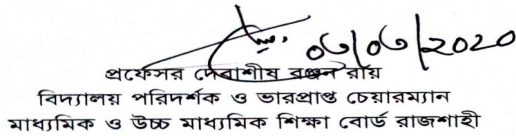 ০৬/০৬/২০২০
প্রফেসর দেবাশীষ রঞ্জন রায়
বিদ্যালয় পরিদর্শক ও ভারপ্রাপ্ত চেয়ারম্যান
মাধ্যমিক ও উচ্চ মাধ্যমিক শিক্ষা বোর্ড রাজশাহী